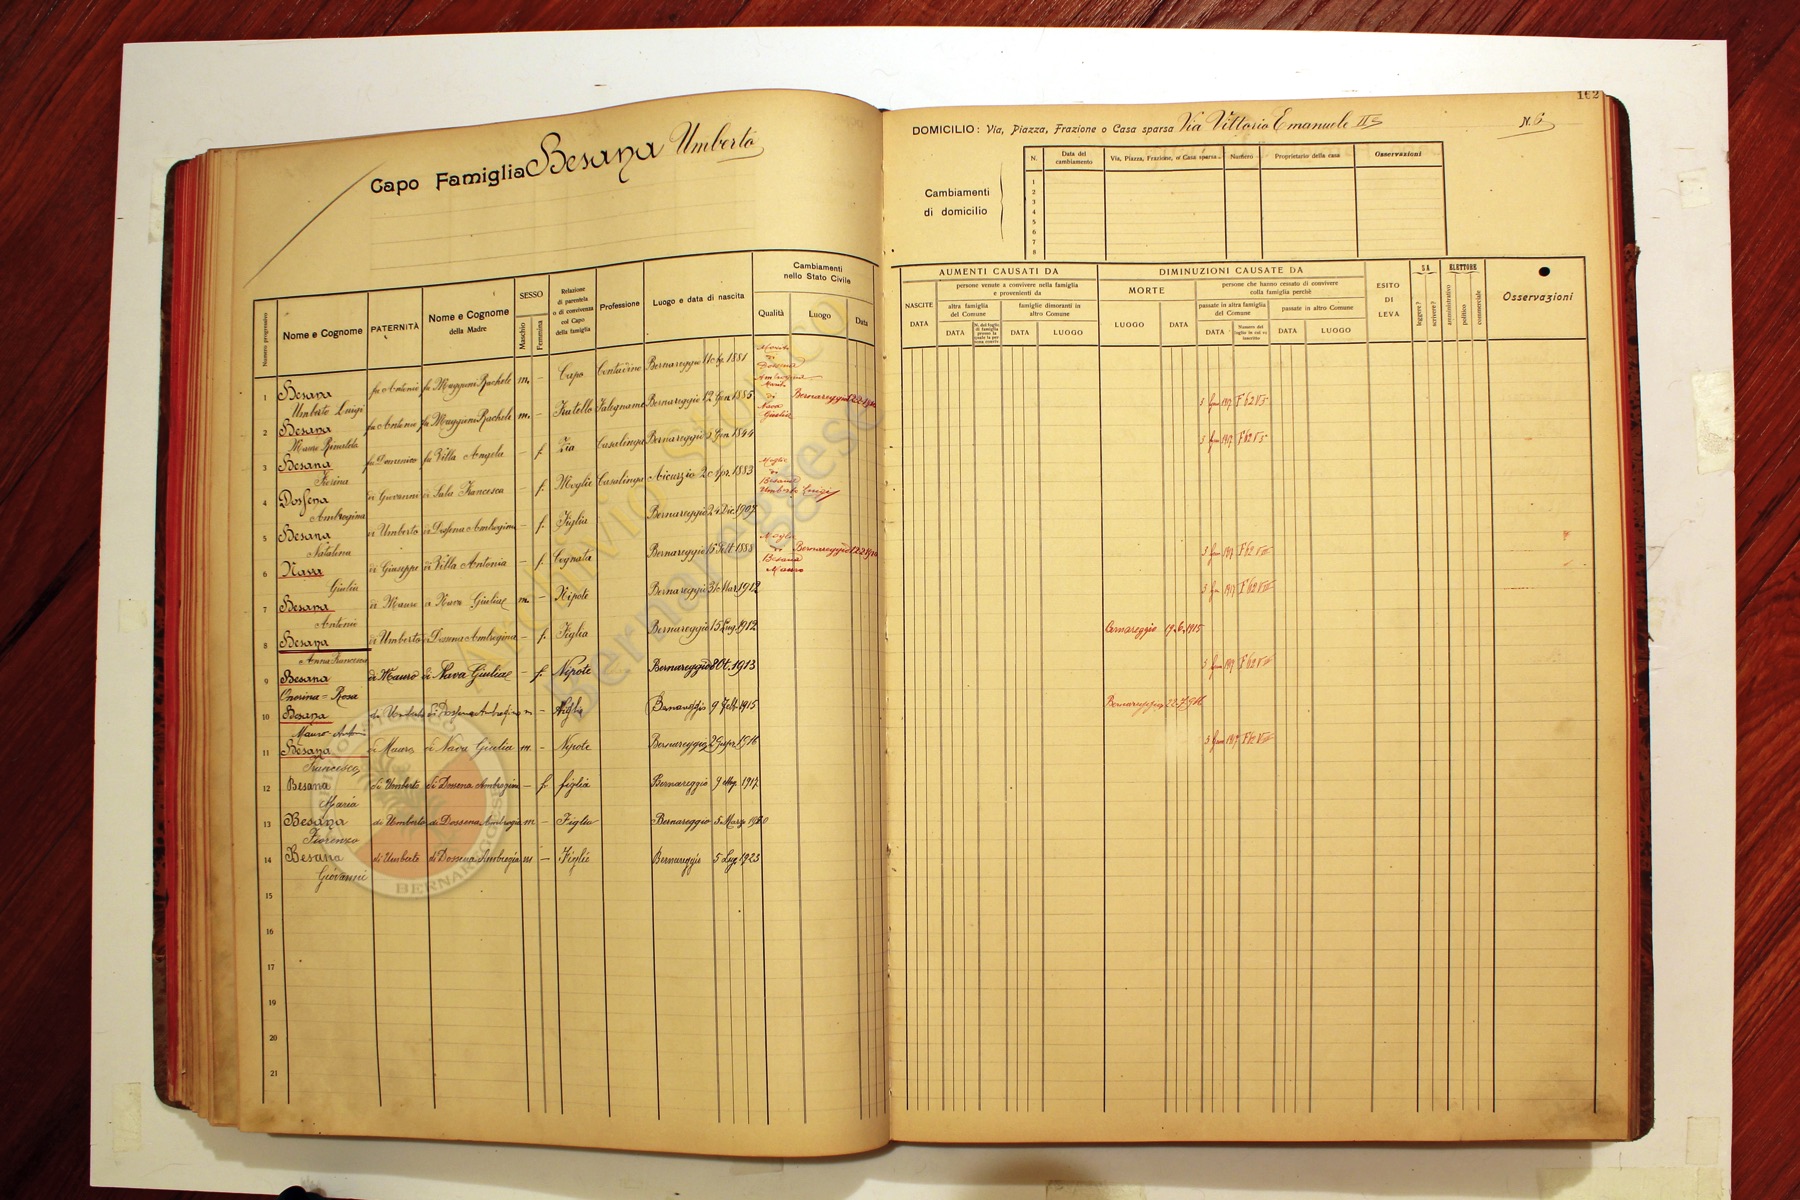 162
Capo Famiglia Besana Umberto
DOMICILIO: Via, Piazza, Frazione o Casa sparsa Via Vittorio Emanuele II N. 6
Cambiamenti di domicilio
N. Data del cambiamento Via, Piazza, Frazione, o Casa sparsa Numero Proprietario della casa Osservazioni
1
2
3
4
5
6
7
8
Numero progressivo Nome e Cognome PATERNITÀ Nome e Cognome della Madre SESSO Maschio Femmina Relazione di parentela o di convivenza col Capo della famiglia Professione Luogo e data di nascita Cambiamenti nello Stato Civile Qualità Luogo Data
NASCITE DATA AUMENTI CAUSATI DA persone venute a convivere nella famiglia e provenienti da altra famiglia del Comune DATA famiglie dimoranti in altro Comune DATA LUOGO
DIMINUZIONI CAUSATE DA MORTE LUOGO DATA persone che hanno cessato di convivere colla famiglia perchè passate in altra famiglia del Comune DATA Numero del foglio in cui si inscritto passate in altro Comune DATA LUOGO
ESITO DI LEVA SA leggere? scrivere? ELETTORE amministrativo politico commerciale Osservazioni
1 Besana Umberto Luigi fu Antonio fu Maggioni Rachele m. – Capo Contadino Bernareggio 1881 Marito di Dossena Ambrogina
2 Besana Mauro fu Antonio fu Maggioni Rachele m. – Fratello Falegname Bernareggio 12 Gen 1885 Marito di Nava Giulia Bernareggio F 62
3 Besana Fiorina fu Domenico fu Villa Angela – f. Zia Casalinga Bernareggio Gen 1844 F 62
4 Dossena Ambrogina di Giovanni di Sala Francesca – f. Moglie Casalinga Aicurzio Apr. 1883 Moglie di Besana Umberto Luigi
5 Besana Natalina di Umberto di Dossena Ambrogina – f. Figlia Bernareggio Dic. 1907
6 Nava Giulia di Giuseppe di Villa Antonia – f. Cognata Bernareggio 15 1888 Moglie di Besana Mauro Bernareggio F 62
7 Besana Antonio di Mauro di Nava Giulia m. – Nipote Bernareggio 31 Mar 1912 F 62
8 Besana Anna Francesca di Umberto di Dossena Ambrogina – f. Figlia Bernareggio 15 Lug. 1912 1915
9 Besana Onorina = Rosa di Mauro di Nava Giulia – f. Nipote Bernareggio 8 Ot. 1913 F 62
10 Besana Mauro di Umberto di Dossena Ambrogina m – Figlio Bernareggio 9 Feb 1915 Bernareggio
11 Besana Francesco di Mauro di Nava Giulia m – Nipote Bernareggio 1916
12 Besana Maria di Umberto di Dossena Ambrogina – f. figlia Bernareggio 9 1917
13 Besana Fiorenzo di Umberto di Dossena Ambrogia m – Figlio Bernareggio 5 Marzo 1920
14 Besana Giovanni di Umberto di Dossena Ambrogia m – Figlio Bernareggio 5 Lug 1923
15
16
17
18
19
20
21
Archivio Storico
Bernareggese